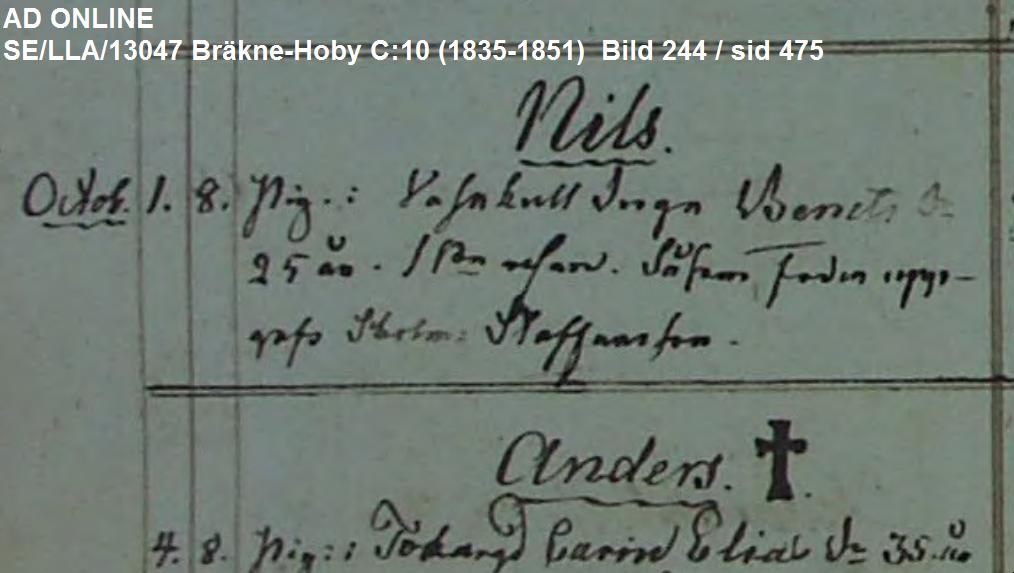 AD ONLINE
SE/LLA/13047 Bräkne-Hoby C:10 (1835-1851) Bild 244 / sid 475
Nils.
Octob. 1. 8. Pig.: Inga Bencts Dr
25 år. såsom fader uppgi-
fves Staffansson.
Anders. †.
4. 8. Pig:: Carin Elias Dr 35. år